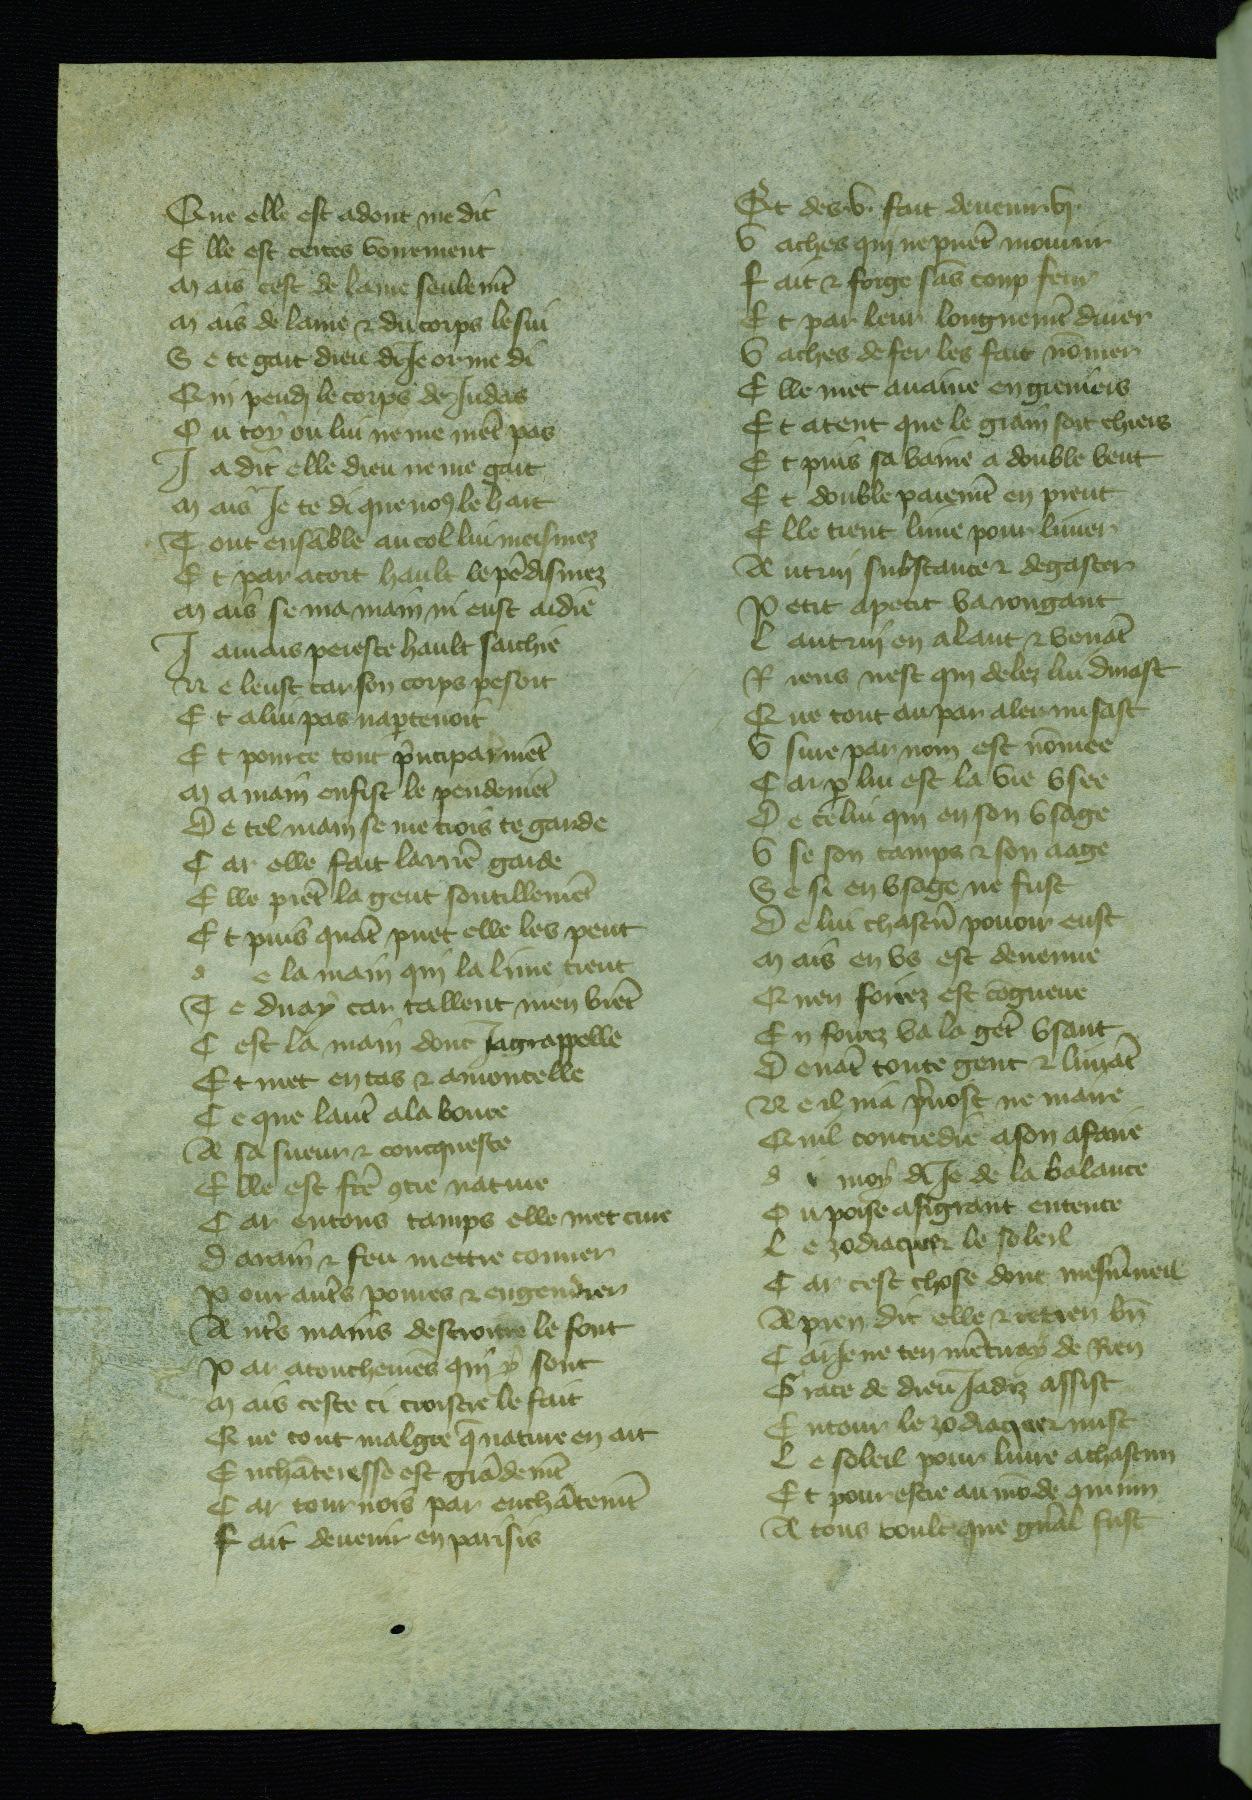 Que elle est adont me dit
E lle est certes vourement
M ais cest de lame seulemẽt
M ais de lame & du corps le sui
S e te gart dieu di Je or me di
Q ui pendj le corps de Judas
O u toy ou lui ne me mẽt pas
J a dit elle dieu ne me gart
M ais Je te di que noꝰ le hart
T out ensãble au col lui meismez
E t par acort hault le pẽdismez
M ais se ma main ni eust aidie
J amais pereste hault sachie
N e leust car son corps pesoit
E t a lui pas nap̱tenoit
E t pource tout p̃ncipaumẽt
M a main en fist le pendemẽt
D e tel main se me crois te garde
C ar elle fait larrẽ garde
E lle prẽt la gent soutillemẽt
E t puis quãt puet elle les pent
d e la main qui la lime tient
T e diray car tallent men viẽt
C est la main dont Jagrappelle
E t met en tas & amoncelle
C e que lautẽ a laboure
A sa sueur & conqueste
E lle est fte ꝯtre nature
C ar en tous tamps elle met cure
D arain & feu mettre couuer
P our autˢ pomes & engendrer
A utˢ mains destroitre le font
P ar atouchemẽs qui y sont
M ais ceste ci croistre le fait
Q ue tout malgre q̃ nature en ait
E nchãteresse est grãdemẽt
C ar tournois par enchãtemẽt
F ait deuenir en parisis
Et des .v. fait deuenir .vj.
V aches qui ne puẽt mourir
F ait & forge sãs coup ferir
E t par leur longuemẽt durer
V aches de fer les fait nõmer
E lle met auaine en greniers
E t atent que le grain soit chiers
E t puis sa vaine a double vent
E t double paiemẽt en prent
E lle tient lime pour limer
A utrui substance & degaster
P etit a petit va rongant
L autrui en alant & venãt
R iens nest qui delez lui durast
Q ue tout au par aler nusast
V sure par nom est nõmee
C ar p̱ lui est la vie vsee
D e celui qui en son vsage
V se son tamps & son aage
S e si en vsage ne fust
D e lui chascũ pouoir eust
M ais en vs est deuenue
Q uen foirez est cõgneue
E n foirez va la gẽt vsant
D euãt toute gent & limãt
N e il nia p̃uost ne maire
Q uil contredie a son afaire
d i moy di Je de la balance
O u poise a si grant entente
L e zodiaque & le soleil
C ar cest chose dont mesmueil
A pren dit elle & retien bñ
C ar Je ne ten mẽtiray de Rien
G race de dieu Jadiz assist
E ntour le zodiaque & mist
L e soleil pour luire a chascun
E t pour estre au mõde qumun
A tous voult que gñal fust